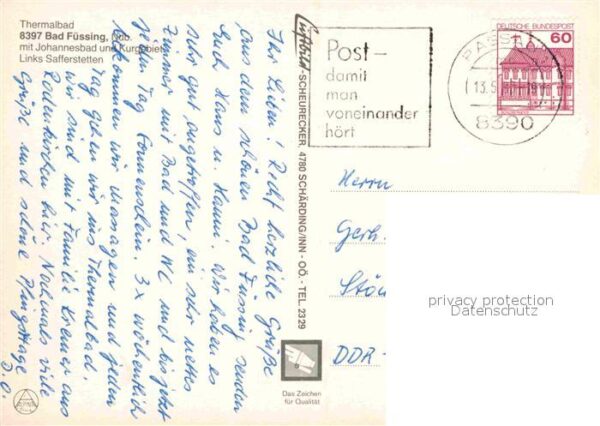 Thermalbad
8397 Bad Füssing, Ndb.
mit Johannesbad und Kurgebiet
Links Safferstetten
Ihr Lieben! Recht herzliche Grüße
aus dem schönen Bad Füssing senden
Euch Hans u. Hanni. Wir haben es
sehr gut angetroffen, ein sehr nettes
Zimmer mit Bad und WC und bis jetzt
jeden Tag Sonnenschein. 3x wöchentlich
bekommen wir Massagen und jeden
Tag gehen wir ins Thermalbad.
Wir sind mit Familie Kremer aus
Rodenkirchen hier. Nochmals viele
Grüße und schöne Pfingsttage
D.O.
Luftbild
-SCHEURECKER, 4780 SCHÄRDING/INN - OÖ. - TEL. 2329
Das Zeichen
für Qualität
Post-
damit
man
voneinander
hört
PASSAU
13.5.
8390
DEUTSCHE BUNDESPOST
60
Herrn
Gerh.
DDR-
privacy protection
Datenschutz